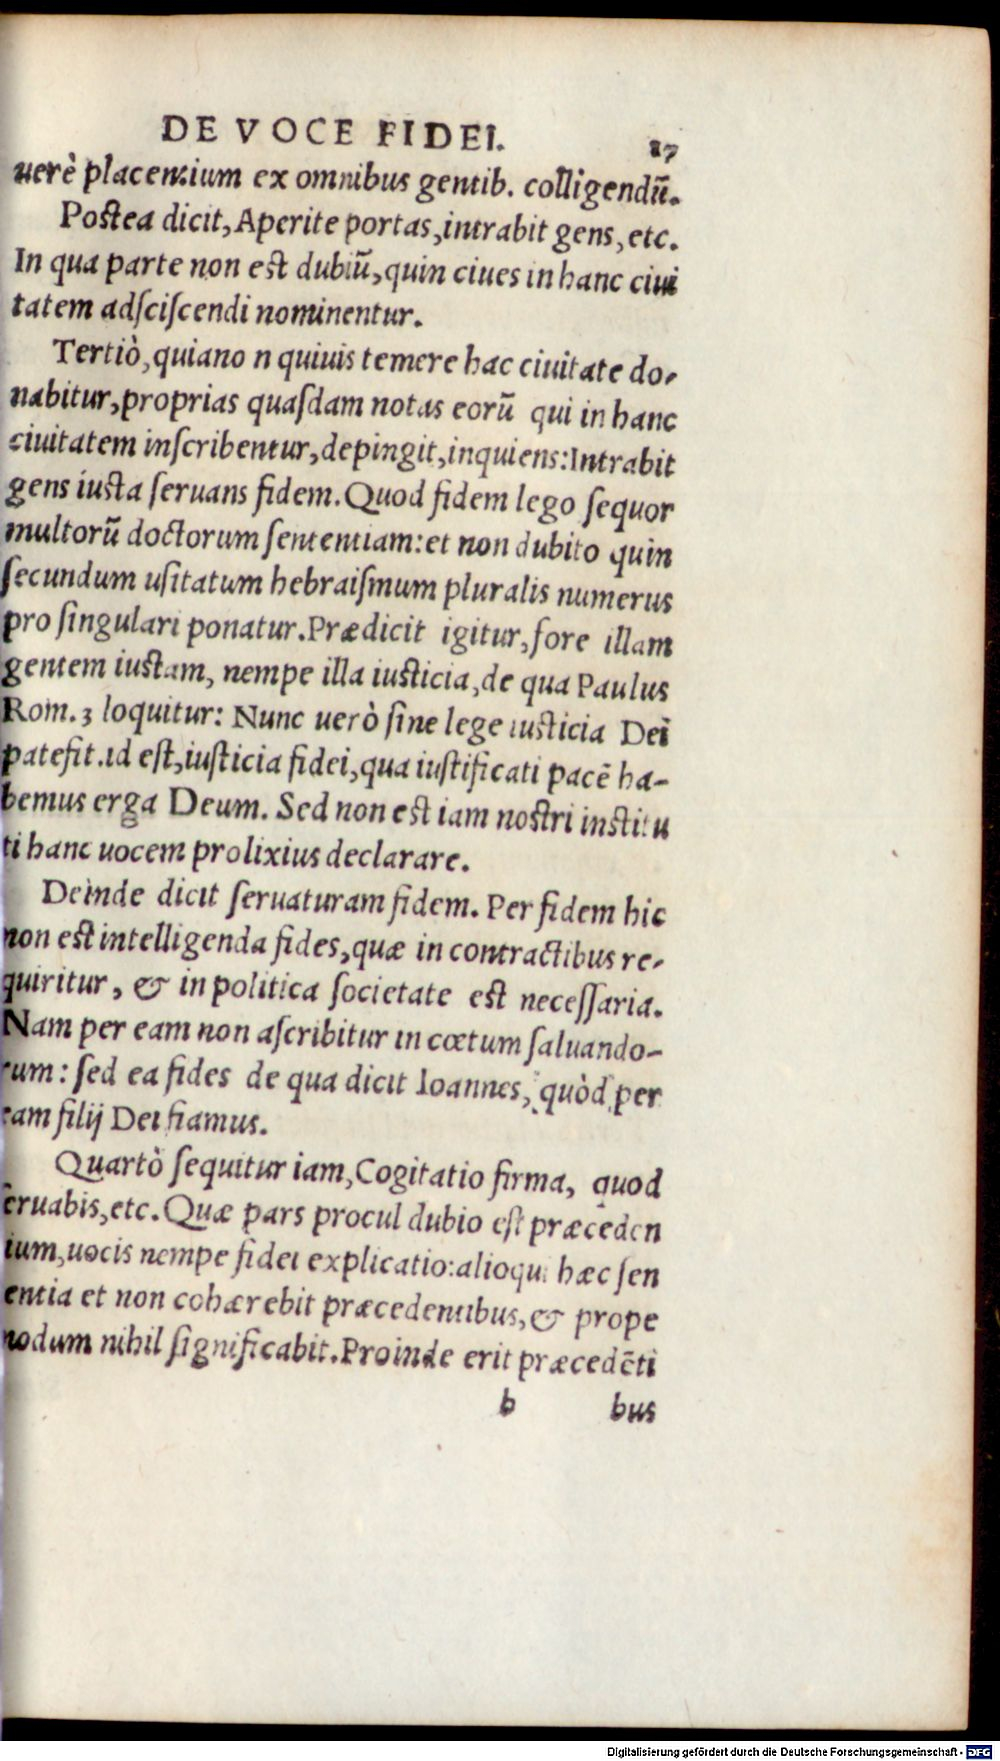 DE VOCE FIDEI. 17
uerè placentium ex omnibus gentib. colligendũ.
Postea dicit, Aperite portas, intrabit gens, etc.
In qua parte non est dubiũ, quin ciues in hanc ciui
tatem adſciſcendi nominentur.
Tertiò, quia no n quiuis temere hac ciuitate do-
nabitur, proprias quaſdam notas eorũ qui in hanc
ciuitatem inſcribentur, depingit, inquiens: Intrabit
gens iusta ſeruans fidem. Quod fidem lego ſequor
multorũ doctorum ſententiam: et non dubito quin
ſecundum uſitatum hebraiſmum pluralis numerus
pro ſingulari ponatur. Prædicit igitur, fore illam
gentem iustam, nempe illa iusticia, de qua Paulus
Rom. 3 loquitur: Nunc uerò ſine lege iusticia Dei
patefit. id eſt, iusticia fidei, qua iustificati pacẽ ha-
bemus erga Deum. Sed non est iam nostri institu
ti hanc uocem prolixius declarare.
Deinde dicit ſeruaturam fidem. Per fidem hic
non est intelligenda fides, quæ in contractibus re-
quiritur, & in politica ſocietate est neceſſaria.
Nam per eam non aſcribitur in cœtum ſaluando-
rum: ſed ea fides de qua dicit Ioannes, quòd per
eam filij Dei fiamus.
Quartò ſequitur iam, Cogitatio firma, quod
ſeruabis, etc. Quæ pars procul dubio est præceden
tium, uocis nempe fidei explicatio: alioqui hæc ſen
tentia et non cohærebit præcedentibus, & prope
modum nihil ſignificabit. Proinde erit præcedẽti
b bus
Digitalisierung gefördert durch die Deutsche Forschungsgemeinschaft - DFG